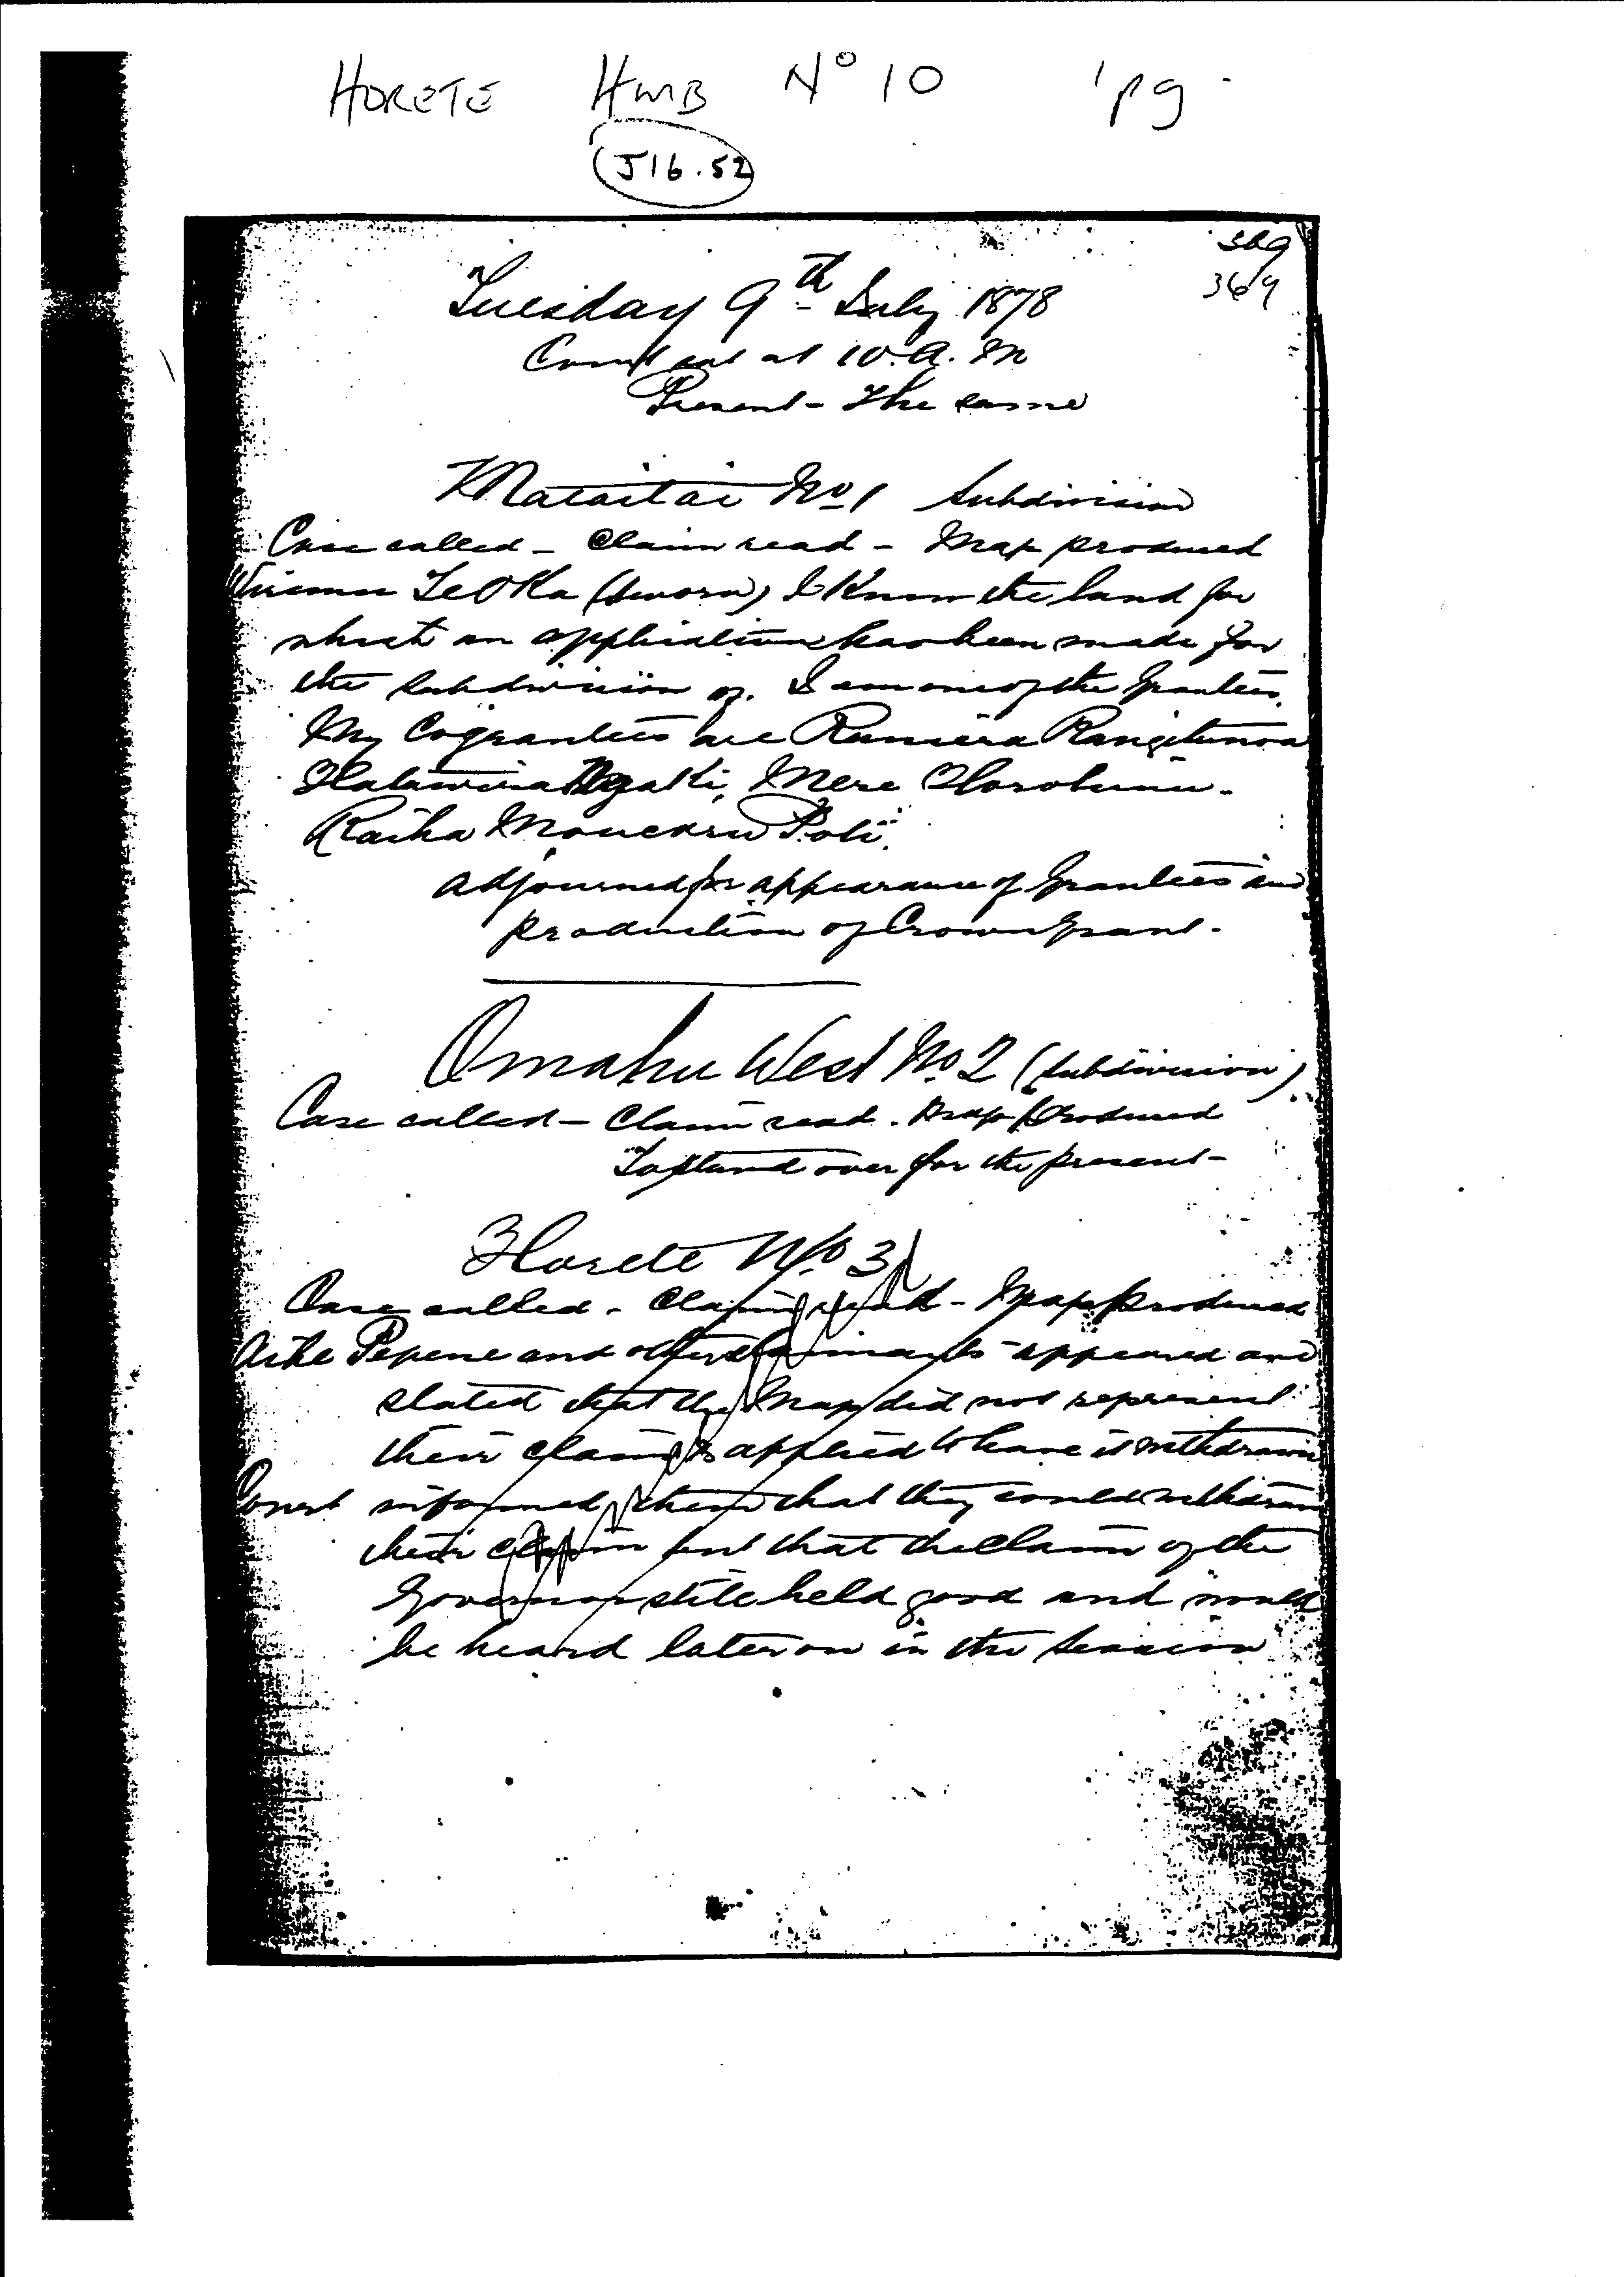 HORETE HMB Nº 10 1 pg
J16.52
369
369
Tuesday 9th July 1878
Court sat at 10. A. M
Present - The same
Mataitai No 1 Subdivision
Case called - Claim read - Map produced
Wiremu Te Oka (sworn) I know the land for
which an application has been made for
the subdivision of. I am one of the Grantees.
My Cograntees are Rangitunoa
Ngaki, Mere
Raiha Poti.
adjourned for appearance of Grantees and
production of Crown Grant.
Omahu West No. 2 (Subdivision)
Case called - Claim read. Map Produced
To stand over for the present -
Horete No. 3
Case called - Claim read - Map produced
Aihe Pepene and other claimants appeared and
stated that the Map did not represent
their claim & applied to have it withdrawn
Court informed them that they could withdraw
their claim but that the Claim of the
Governor still held good and would
be heard later on in the session